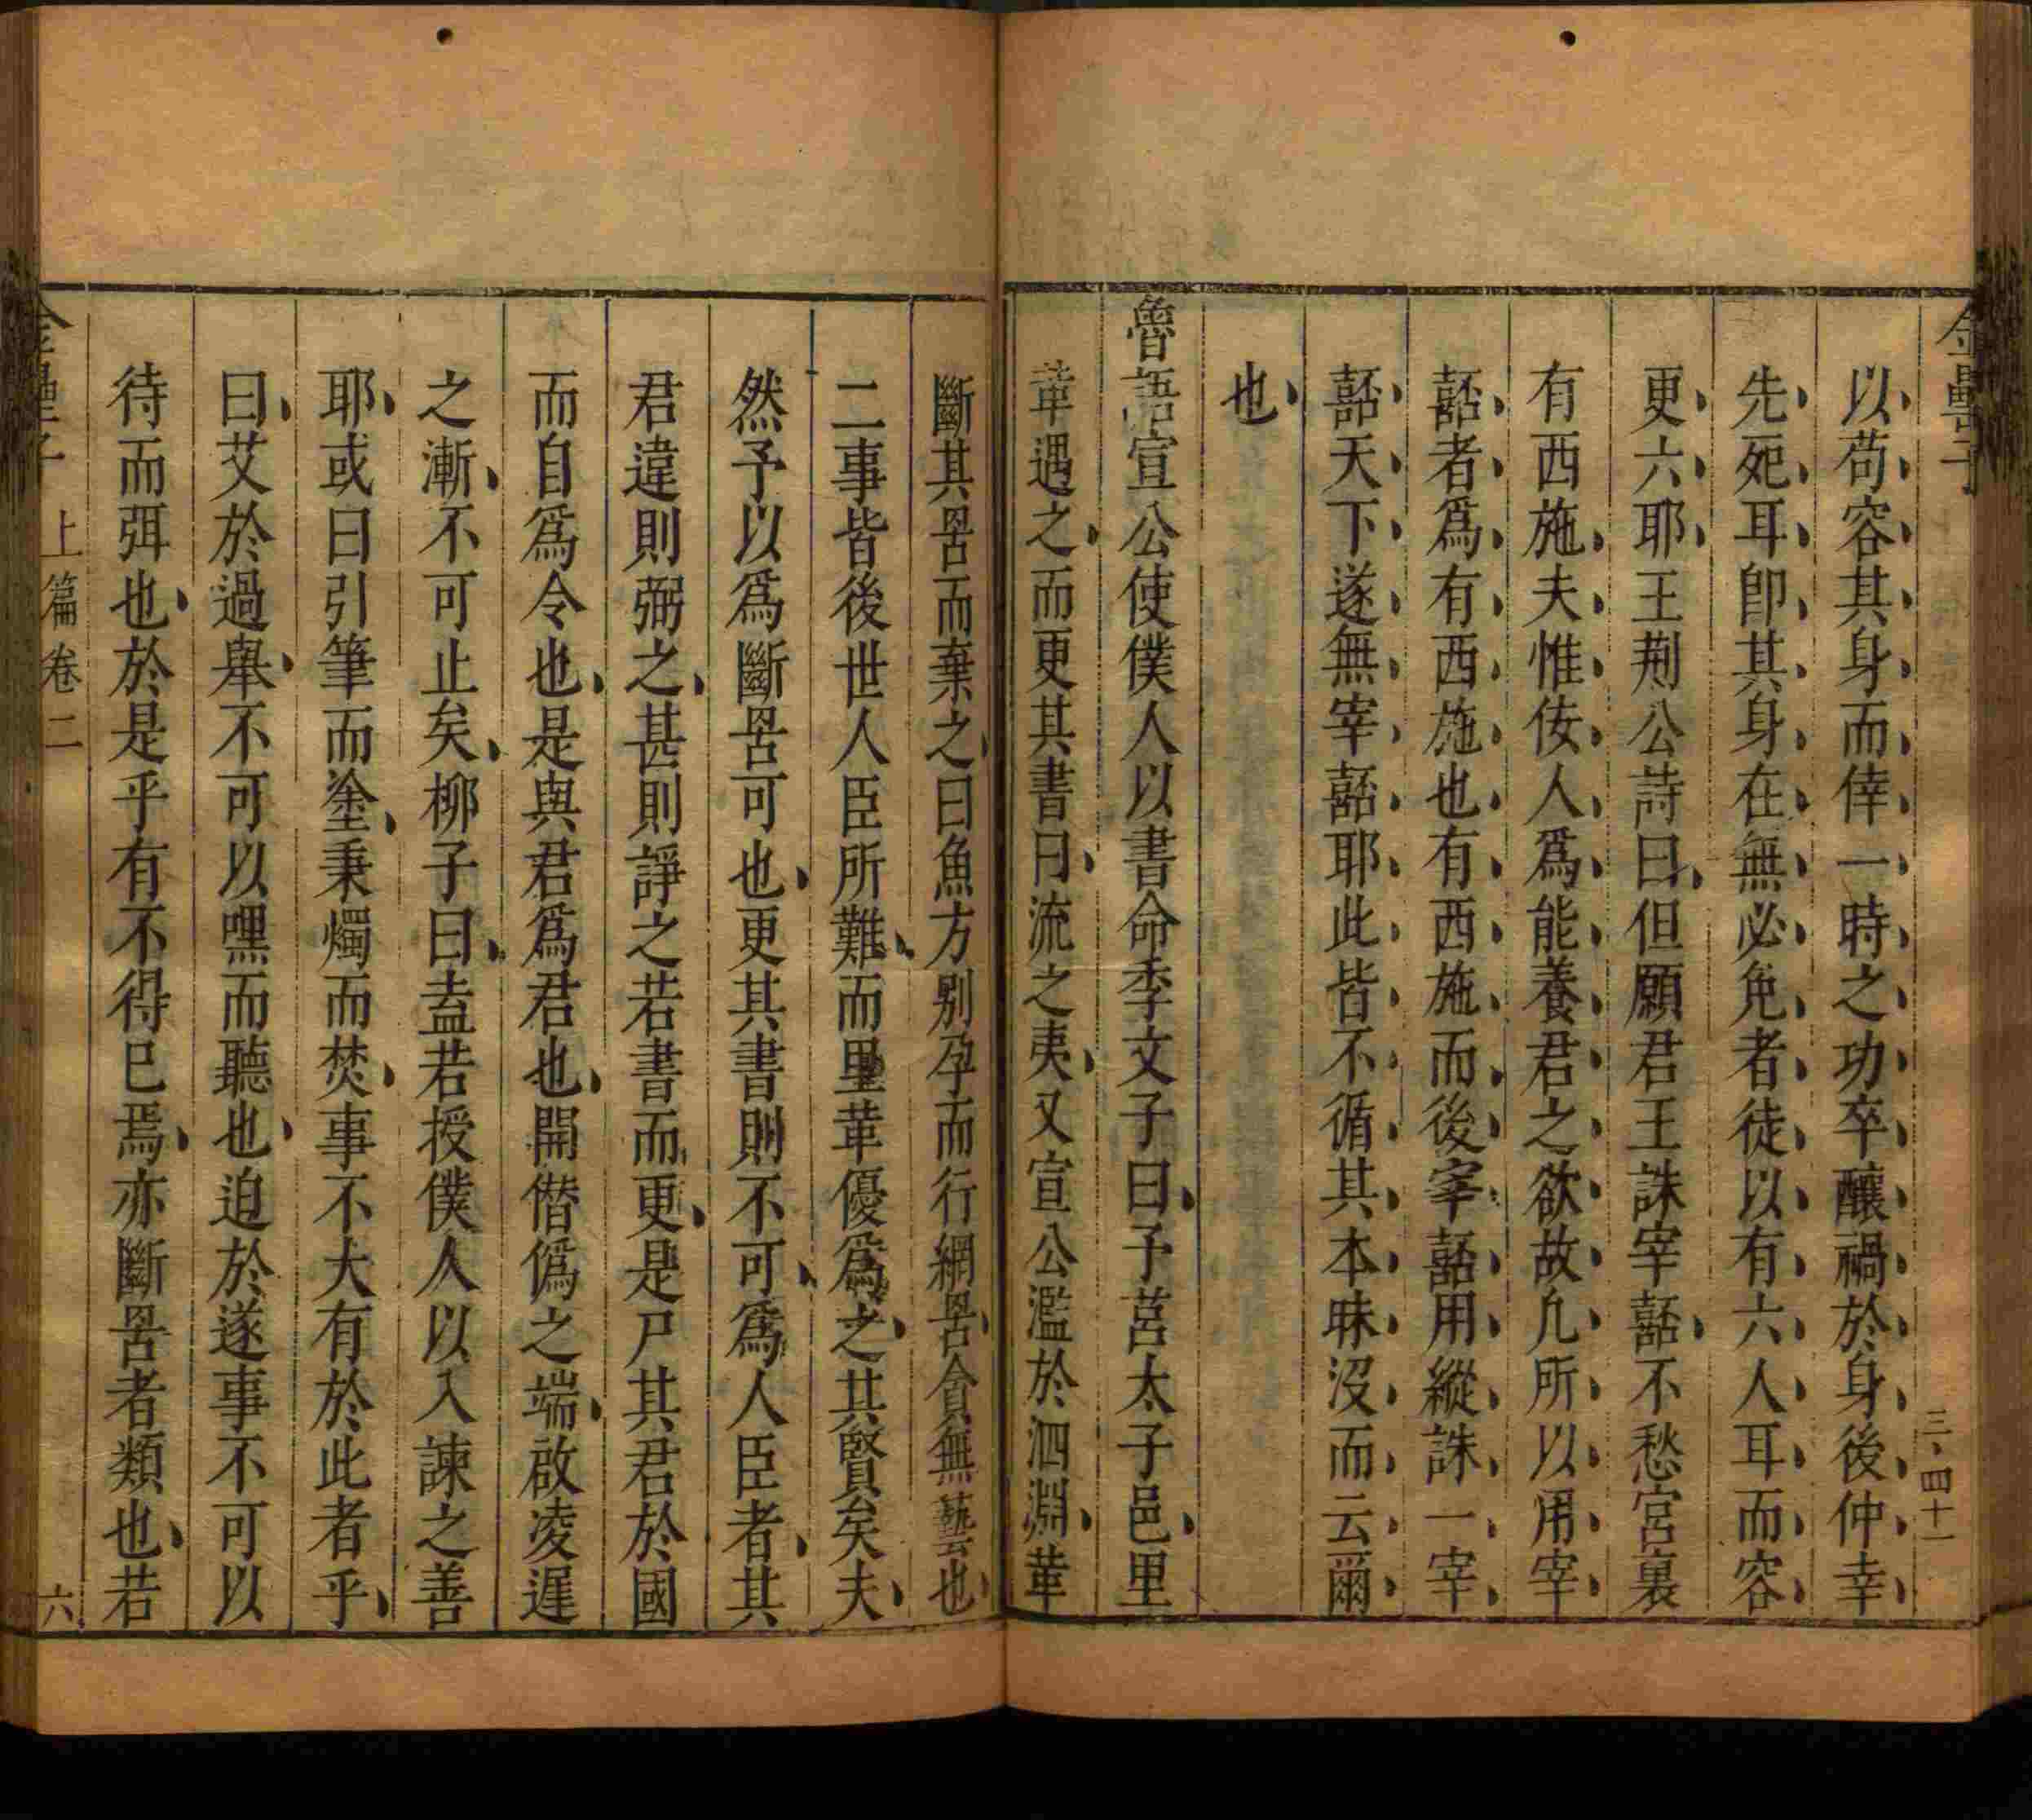 金罍子
三、四十一
以苟容其身而倖一時之功卒釀禍於身後仲幸
先死耳卽其身在無必免者徒以有六人耳而容
更六耶王荆公詩曰但願君王誅宰嚭不愁宮裏
有西施夫惟佞人爲能養君之欲故凢所以用宰
嚭者爲有西施也有西施而後宰嚭用縱誅一宰
嚭天下遂無宰嚭耶此皆不循其本昧沒而云爾
也
魯語宣公使僕人以書命季文子曰予莒太子邑里
革遇之而更其書曰流之夷又宣公濫於泗淵革
斷其罟而棄之曰魚方别孕而行網罟貪無藝也
二事皆後世人臣所難而里革優爲之其賢矣夫
然予以爲斷罟可也更其書則不可爲人臣者其
君違則弼之甚則諍之若書而更是尸其君於國
而自爲令也是與君爲君也開僭僞之端啟凌遲
之漸不可止矣柳子曰盍若授僕人以入諫之善
耶或曰引筆而塗秉燭而焚事不大有於此者乎
曰艾於過舉不可以嘿而聽也迫於遂事不可以
待而弭也於是乎有不得巳焉亦斷罟者類也若
金罍子 上篇卷二 六